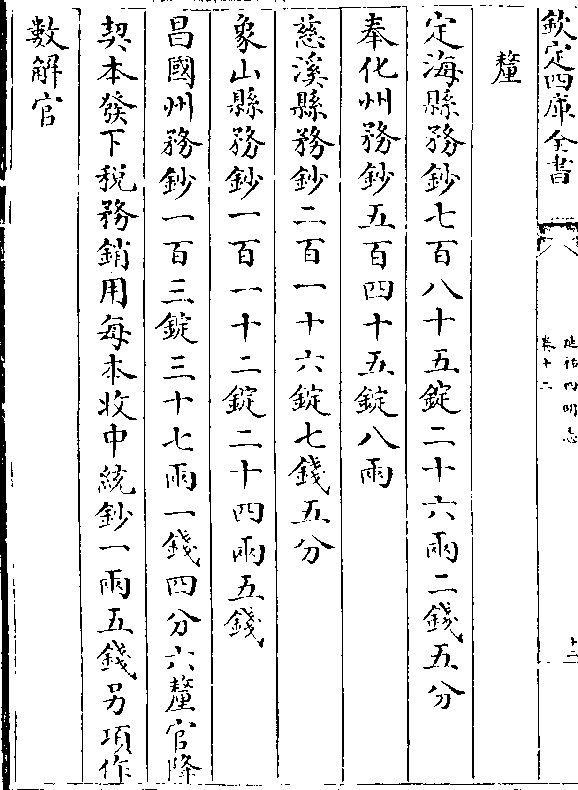 欽定四庫全書
延祐四明志
卷十二
十三
釐
定海縣務鈔七百八十五錠二十六兩二錢五分
奉化州務鈔五百四十五錠八兩
慈溪縣務鈔二百一十六錠七錢五分
象山縣務鈔一百一十二錠二十四兩五錢
昌國州務鈔一百三錠三十七兩一錢四分六釐官降
契本發下稅務銷用每本收中統鈔一兩五錢另項作
數解官